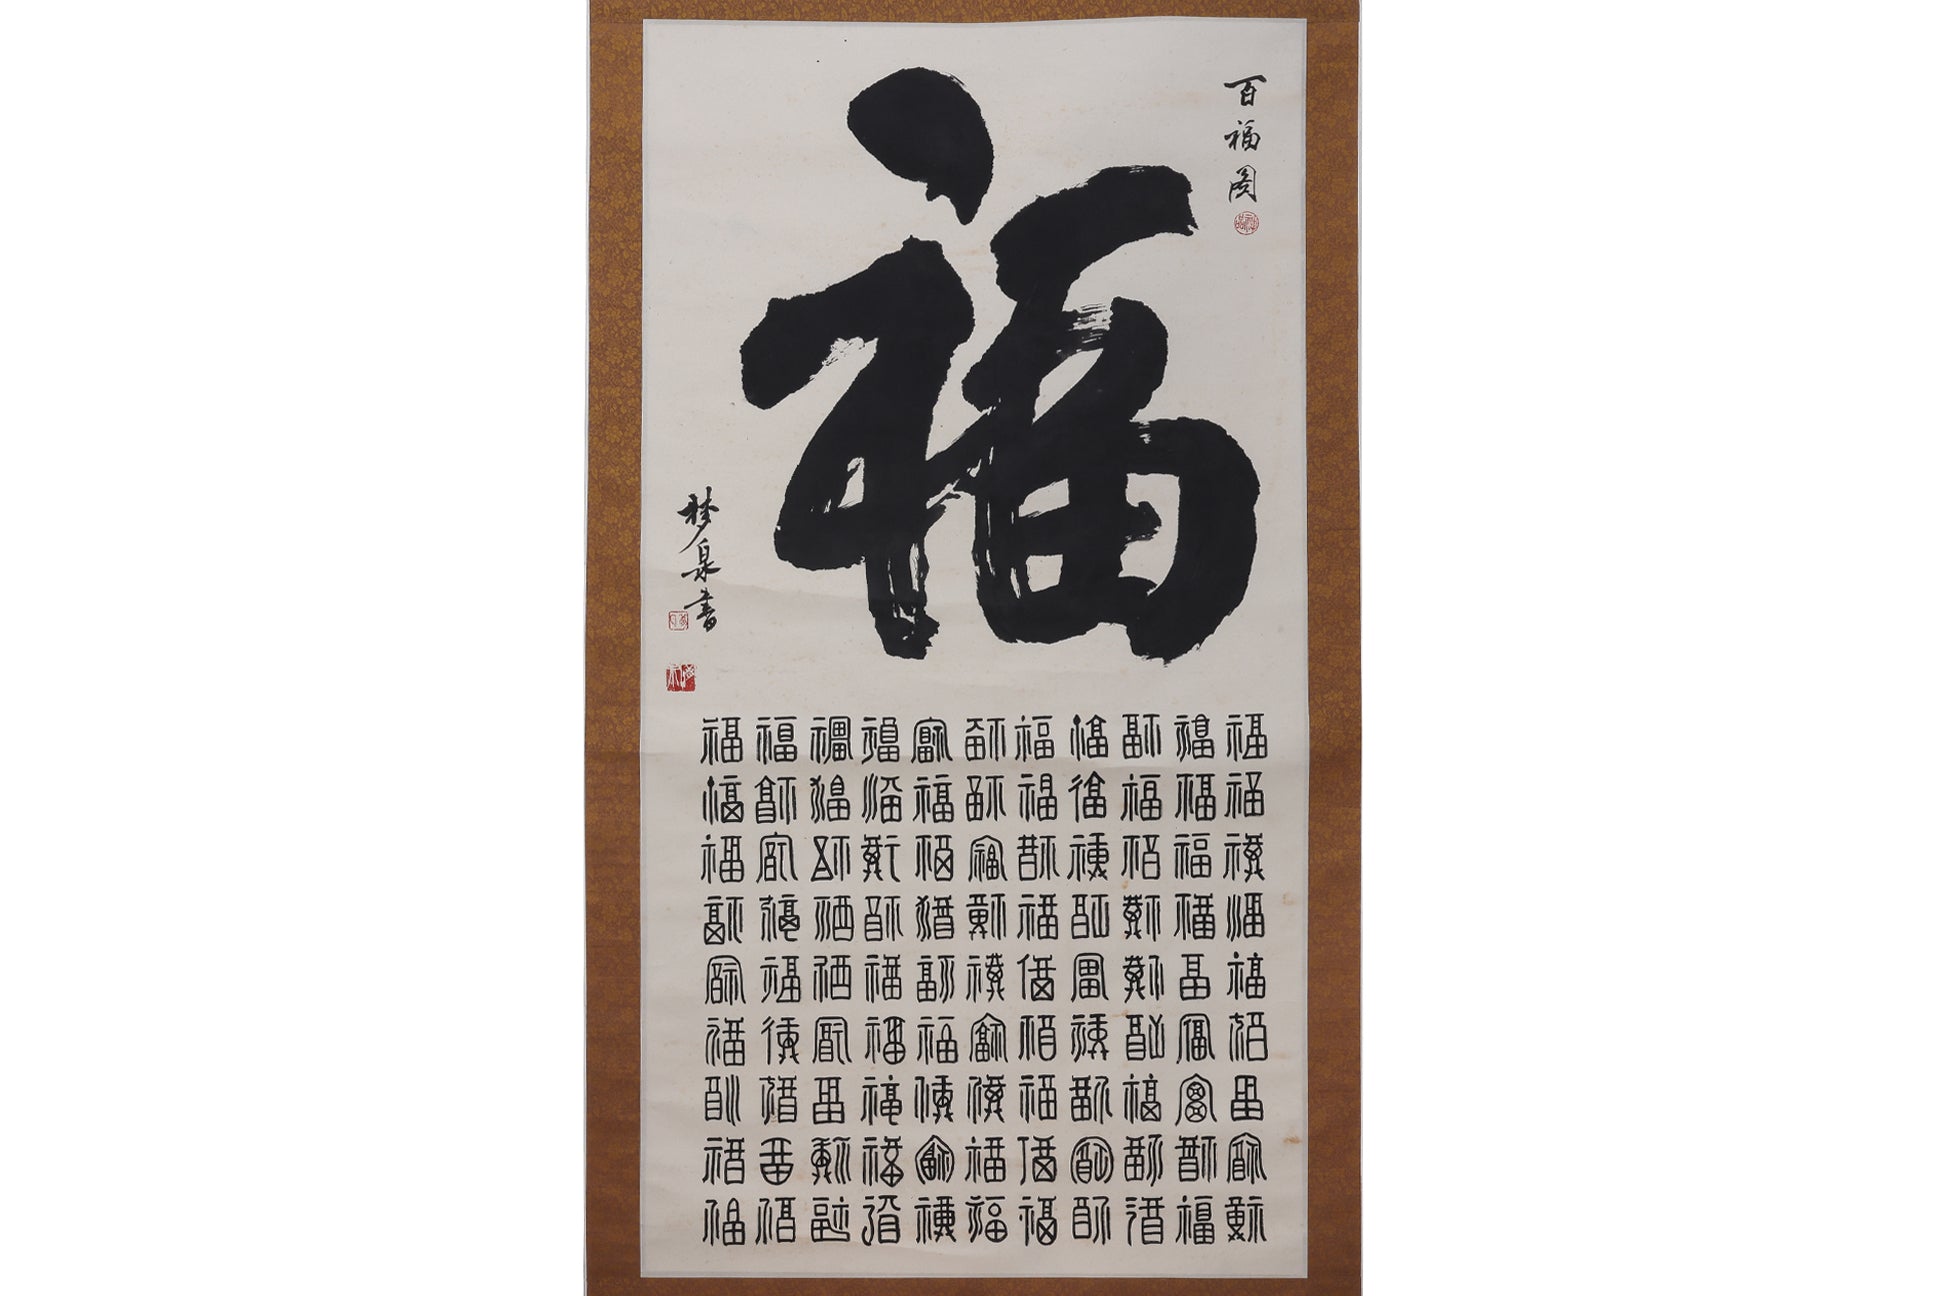 百福图
福
梦泉書
福福福福福福福福福
福福福福福福福福福
福福福福福福福福福
福福福福福福福福福
福福福福福福福福福
福福福福福福福福福
福福福福福福福福福
福福福福福福福福福
福福福福福福福福福
福福福福福福福福福
福福福福福福福福福